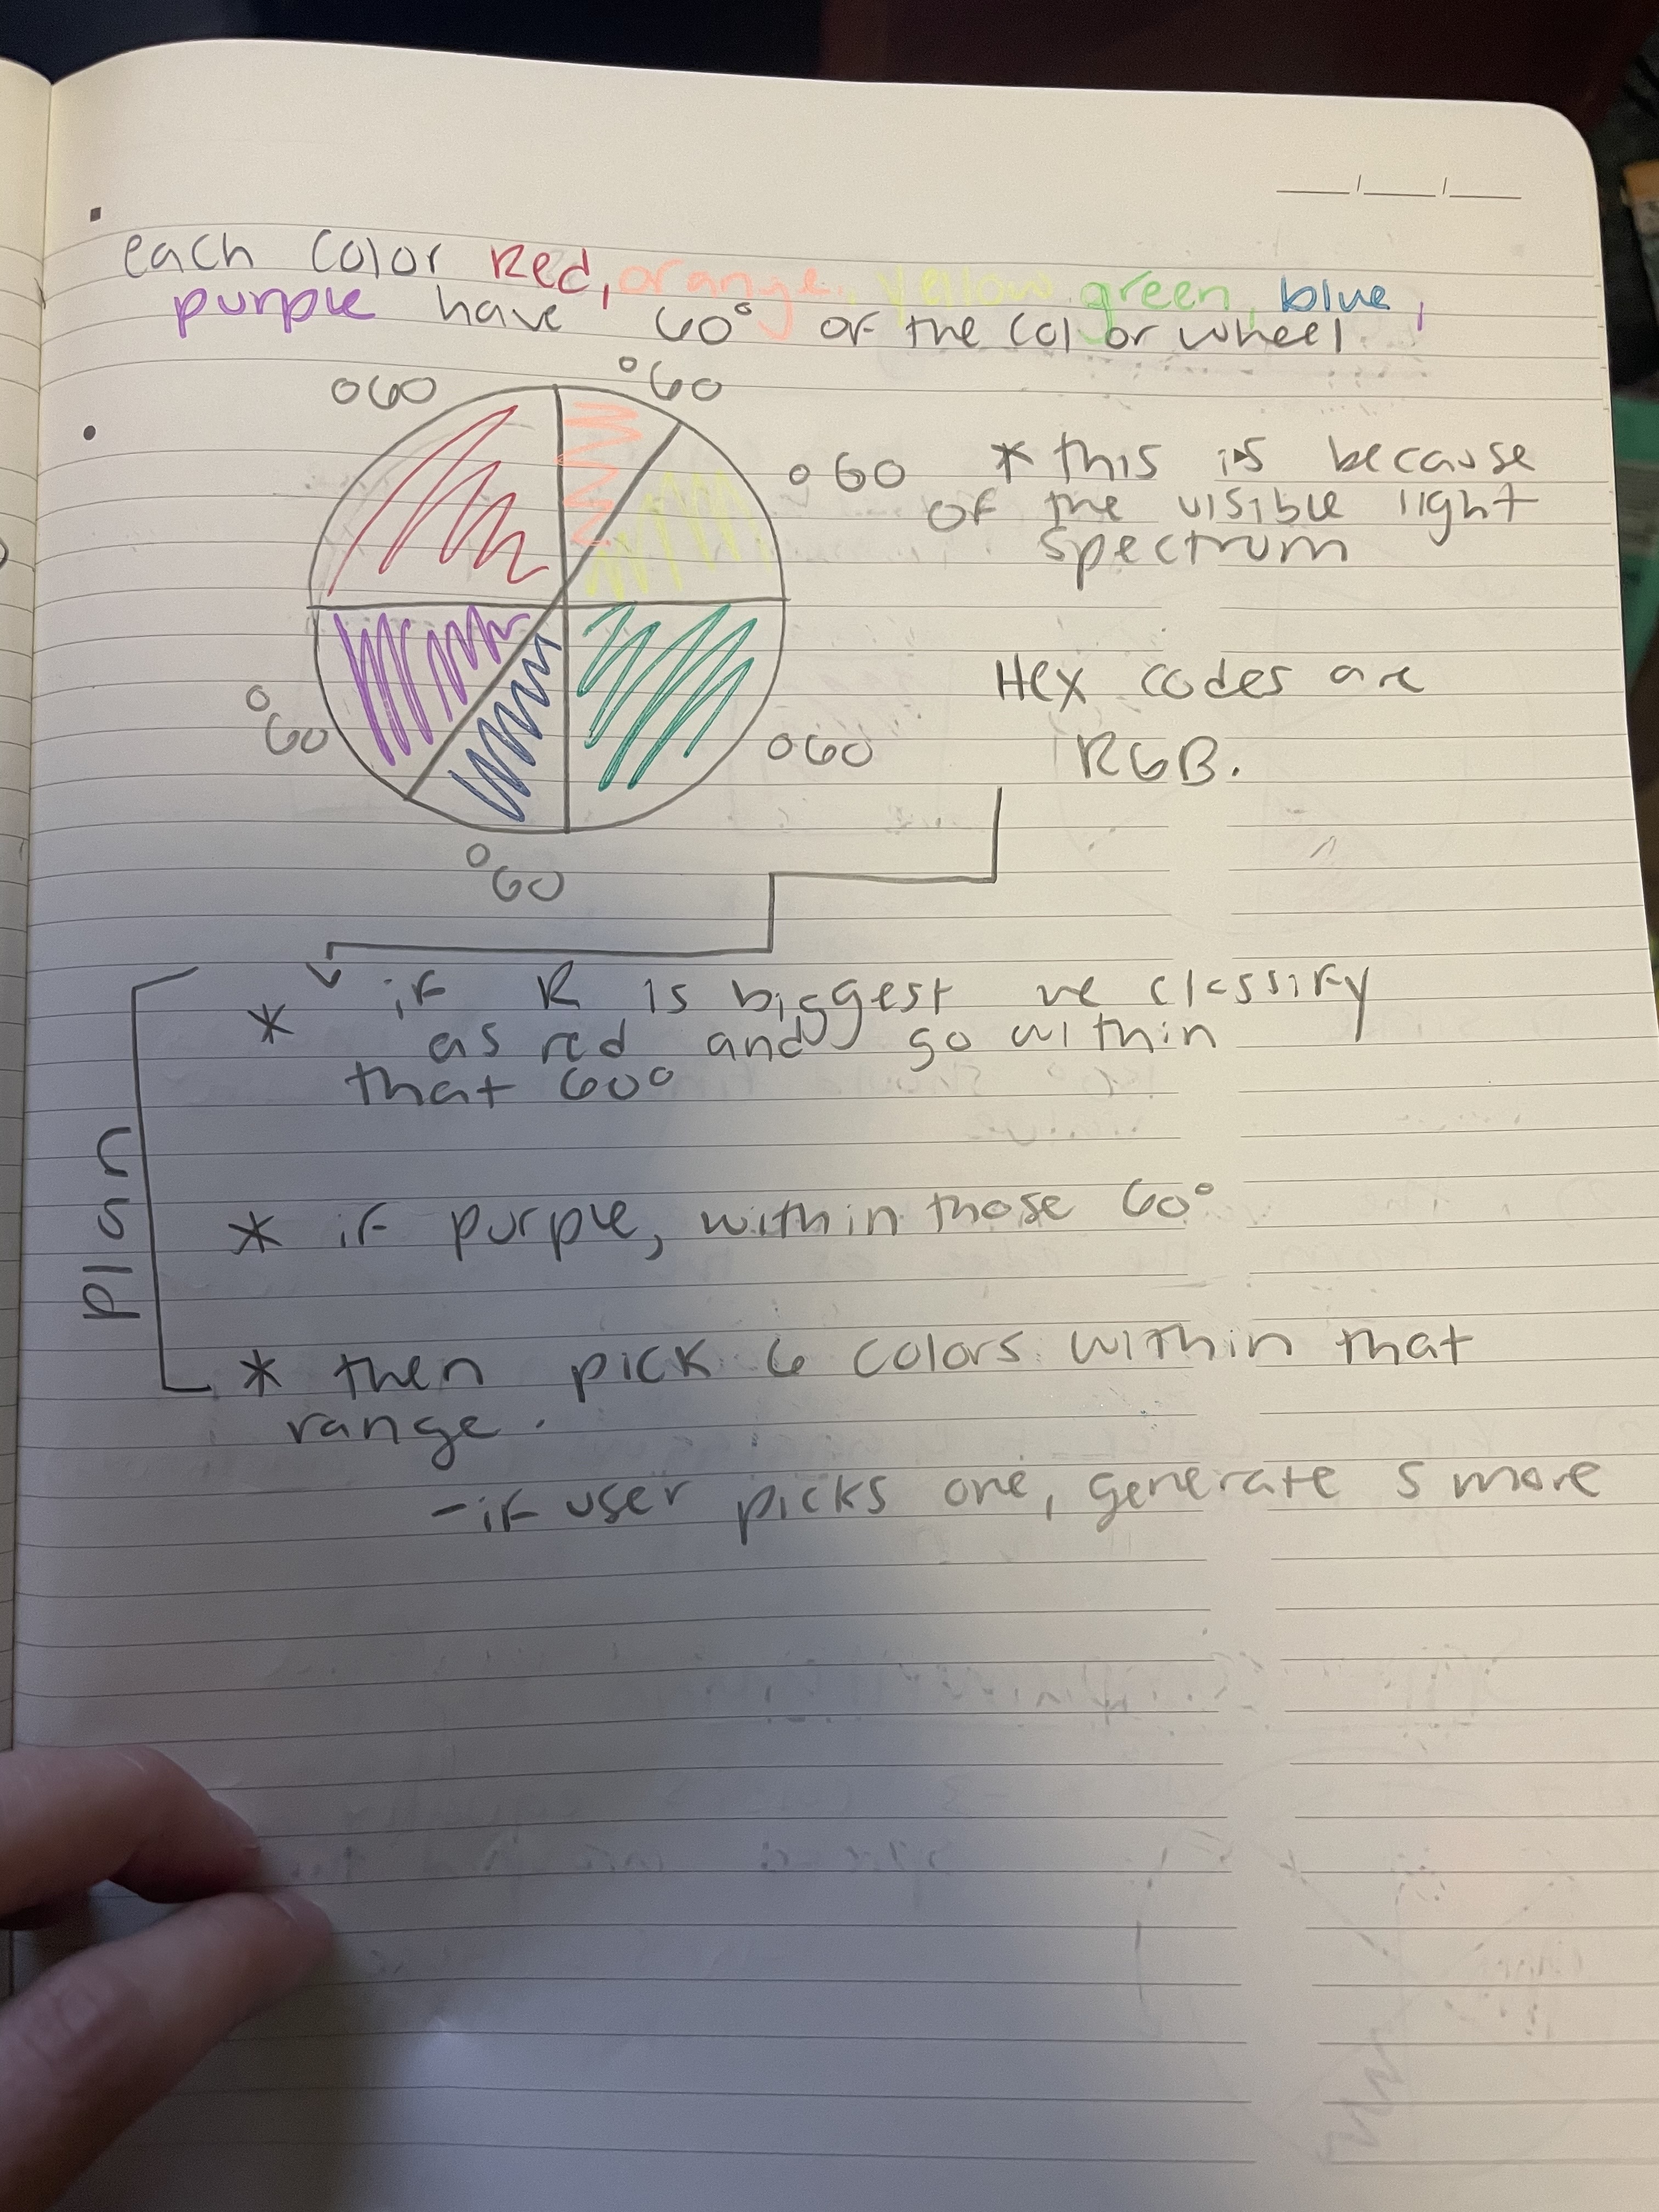 each color Red, orange, yellow, green, blue,
purple have 60° of the color wheel
°60
°60
°60
* this is because
of the visible light
spectrum
Hex codes are
RGB.
°60
°60
°60
plan
* if R is biggest we classify
as red and go within
that 60°
* if purple, within those 60°
* then pick 6 colors within that
range.
- if user picks one, generate 5 more